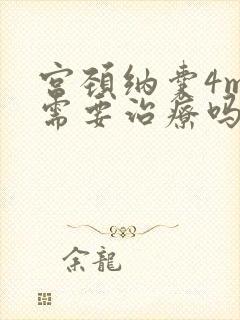 宫颈纳囊4m
需要治疗吗
余龍